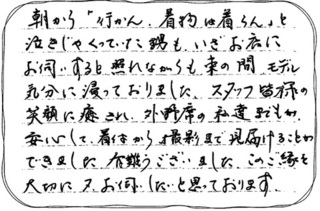 朝から「行かん、着物は着らん」と
泣きじゃくっていた娘も、いざお店に
お伺いすると照れながらも束の間、モデル
気分に浸っておりました。スタッフ皆様の
笑顔に癒され、外野席の私達までもが
安心して、着付から撮影まで見届けることが
できました。有難うございました。このご縁を
大切に又、お伺いしたいと思っております。